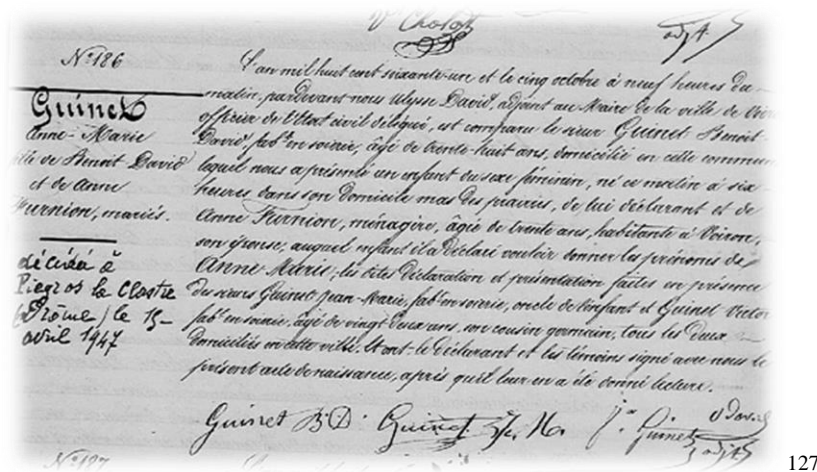 Vr Chol
adjt.
N° 186
Guinet
Anne-Marie
fille de Benoit David
et de Anne
Furnion, mariés.
décédée à
Piegros la Clastre
(Drôme) le 15
avril 1947
L'an mil huit cent soixante-un et le cinq octobre à neuf heures du
matin, pardevant nous Ulysse David, adjoint au Maire de la ville de Voiron
officier de l'Etat civil délégué, est comparu le sieur Guinet Benoit
David, fabt en soierie, âgé de trente-huit ans, domicilié en cette commune
lequel nous a présenté un enfant du sexe féminin, né ce matin à six
heures dans son domicile mas des prairies, de lui déclarant et de
Anne Furnion, ménagère, âgée de trente ans, habitante à Voiron,
son épouse, auquel enfant il a déclaré vouloir donner les prénoms de
Anne-Marie; les dites déclaration et présentation faites en présence
des sieurs Guinet Jean-Marie, fabt en soierie, oncle de l'enfant et Guinet Victor
fabt en soierie, âgé de vingt-deux ans, son cousin germain, tous les deux
domiciliés en cette ville. Et ont le déclarant et les témoins signé avec nous le
présent acte de naissance, après qu'il leur en a été donné lecture.
Guinet B D. Guinet J. M. Guinet U David
adjt
N° 187
127